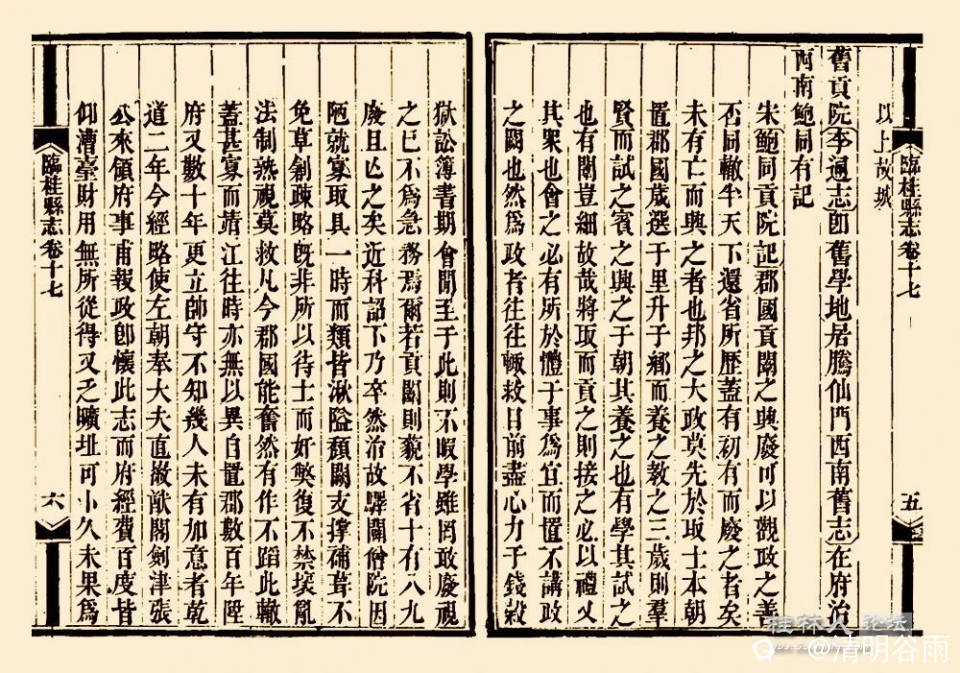 臨桂縣志 卷十七
五
以上故城
舊貢院李通志卽舊學地居騰仙門西南舊志在府治
西南鮑同有記
宋鮑同貢院記郡國貢闈之興廢可以觀政之善
否同轍半天下還省所歷蓋有初有而廢之者矣
未有亡而興之者也邦之大政莫先於取士本朝
置郡國歲選千里升于鄉而養之教之三歲則羣
賢而試之賓之興之于朝其養之也有學其試之
也有闈豈細故哉將取而貢之則接之必以禮又
其衆也會之必有所於體于事爲宜而置不講政
之闕也然爲政者往往輙救目前盡心力于錢穀
獄訟簿書期會聞至于此則不暇學雖罔敢廢視
之已不爲急務焉爾若貢闈則藐不省十有八九
廢且亾之矣近科詔下乃卒然治故驛闢僧院因
陋就寡取具一時而類皆湫隘頹闕支撑補葺不
免草剏疎略旣非所以待士而奸樊復不禁壞亂
法制熟視莫救凡今郡國能奮然有作不蹈此轍
蓋甚寡而靖江往時亦無以異自置郡數百年陞
府又數十年更立帥守不知幾人未有加意者乾
道二年今經略使左朝奉大夫直敵猷閣劍津張
公來領府事甫報政卽懷此志而府經費百度皆
仰漕臺財用無所從得又乏曠址可卜久未果爲
臨桂縣志 卷十七
六
桂林人论坛
@清明谷雨